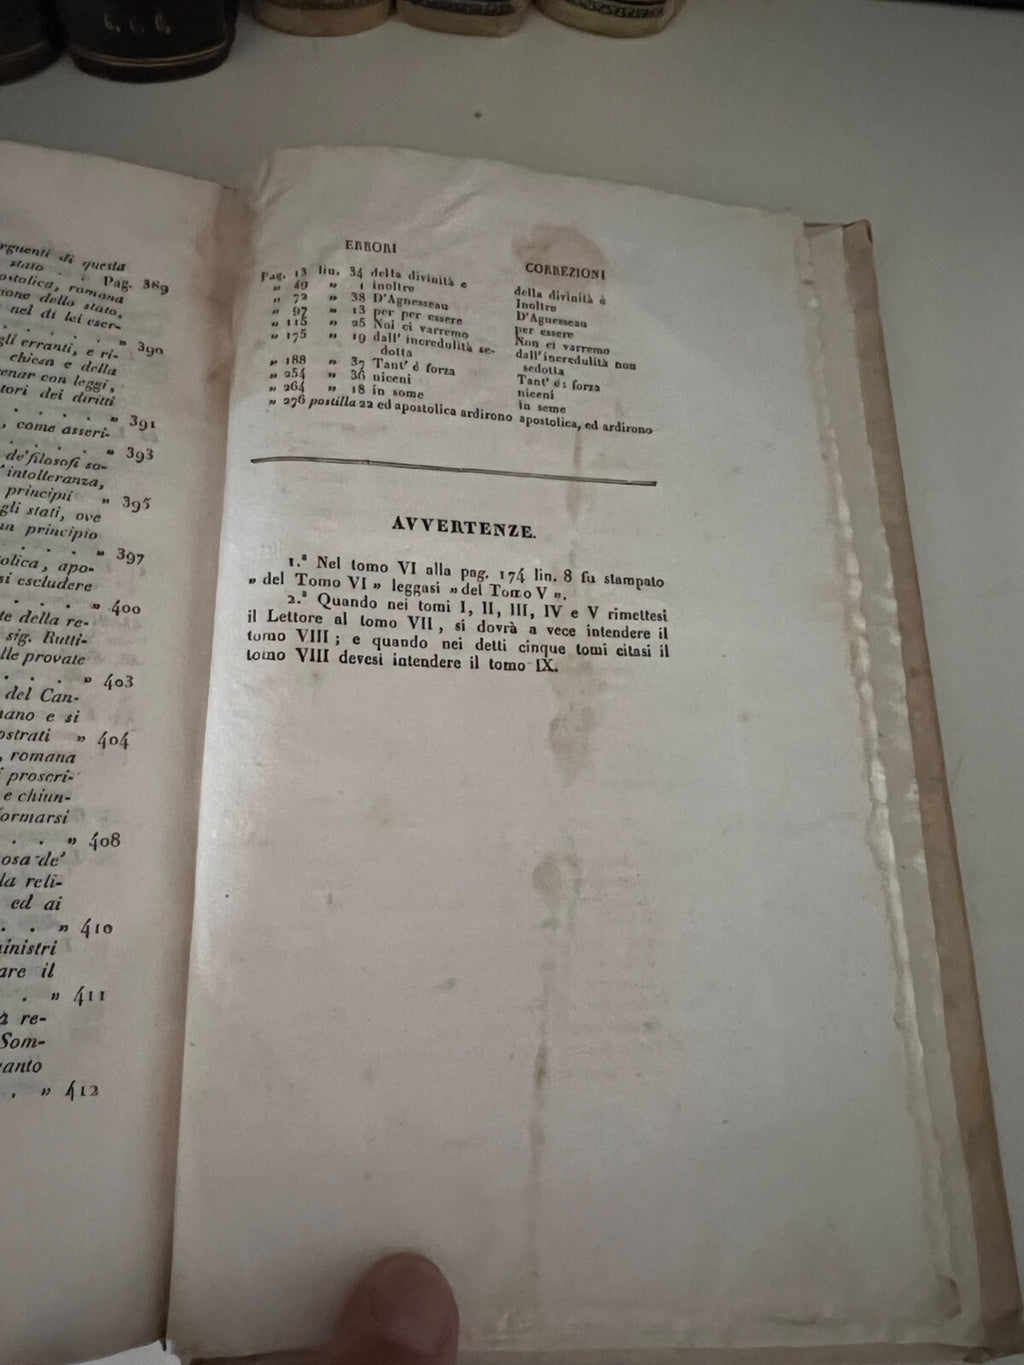 rguenti di questa
stato . . Pag. 389
ostolica, romana
ione dello stato,
nel di lei eser-
. . . . . . » 390
gli erranti, e ri-
chiesa e della
enar con leggi,
tori dei diritti
. . . . . » 391
, come asseri-
. . . . . » 393
de'filosofi so-
'intolleranza,
principii » 395
gli stati, ove
un principio
. . . . . » 397
olica, apo-
si escludere
. . . . » 400
te della re-
sig. Rutti-
lle provate
. . . . » 403
del Can-
ano e si
ostrati » 404
, romana
proscri-
e chiun-
formarsi
. . . » 408
osa de'
la reli-
ed ai
. . . » 410
inistri
are il
. » 411
a re-
Som-
anto
. . » 412
ERRORI CORREZIONI
Pag. 13 lin. 34 della divinità e della divinità è
» 49 » 1 inoltre Inoltre
» 72 » 38 D'Agnesseau D'Aguesseau
» 97 » 13 per per essere per essere
» 115 » 25 Noi ci varremo Non ci varremo
» 175 » 19 dall' incredulità se- dall'incredulità non
dotta sedotta
» 188 » 37 Tant' é forza Tant' é: forza
» 254 » 36 niceni niceni
» 264 » 18 in some in seme
» 276 postilla 22 ed apostolica ardirono apostolica, ed ardirono
AVVERTENZE.
1.ª Nel tomo VI alla pag. 174 lin. 8 fu stampato
» del Tomo VI » leggasi » del Tomo V ».
2.ª Quando nei tomi I, II, III, IV e V rimettesi
il Lettore al tomo VII, si dovrà a vece intendere il
tomo VIII; e quando nei detti cinque tomi citasi il
tomo VIII devesi intendere il tomo IX.